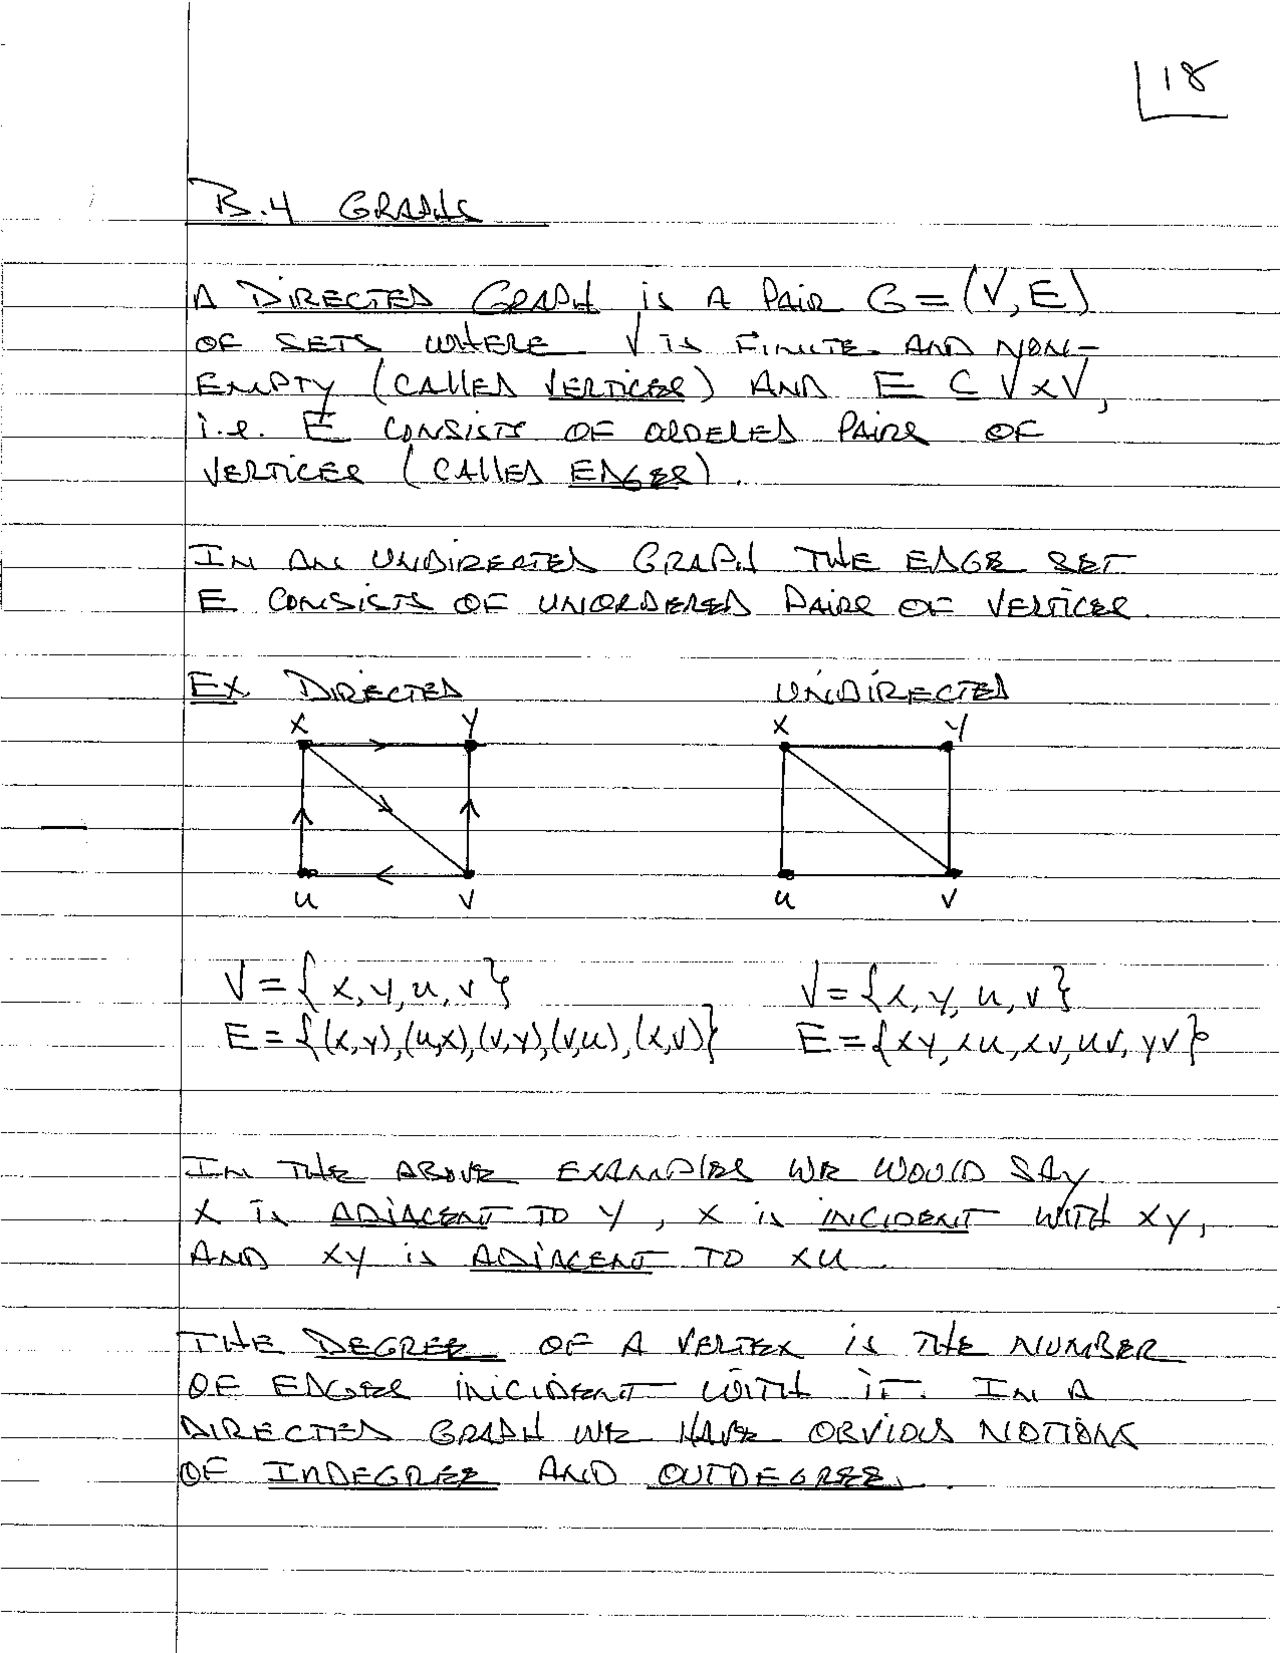 18
B.4 GRAPHS
A DIRECTED GRAPH is A PAiR G = (V, E)
OF SETS WHERE V is FINITE AND NON-
EMPTY (CALLED VERTICES) AND E ⊆ V x V,
i.e. E CONSISTS OF ORDERED PAIRS OF
VERTICES (CALLED EDGES).
IN AN UNDIRECTED GRAPH THE EDGE SET
E CONSISTS OF UNORDERED PAIRS OF VERTICES.
EX. DIRECTED UNDIRECTED
X Y X Y
u v u v
V = {x, y, u, v} V = {x, y, u, v}
E = {(x,y), (u,x), (v,y), (v,u), (x,v)} E = {xy, xu, xv, uv, yv}
IN THE ABOVE EXAMPLES WE WOULD SAY
X is ADJACENT TO Y, X is INCIDENT WITH XY,
AND XY is ADJACENT TO XU.
THE DEGREE OF A VERTEX is THE NUMBER
OF EDGES INICIDENT WITH IT. IN A
DIRECTED GRAPH WE HAVE OBVIOUS NOTIONS
OF INDEGREE AND OUTDEGREE.